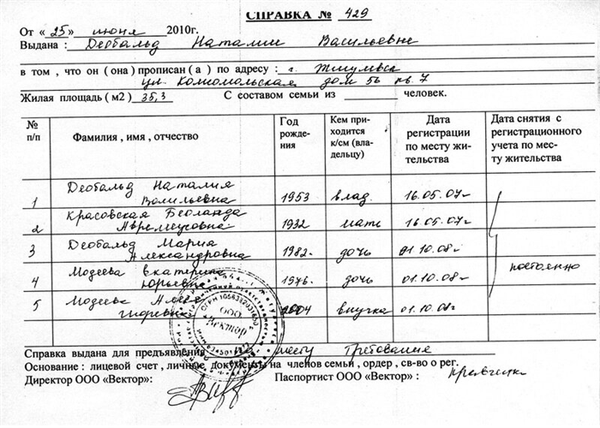 СПРАВКА № 429
От « 25 » июня 2010г.
Выдана : Деобальд Наталии Васильевне
в том , что он ( она ) прописан ( а ) по адресу : г. Жигулевск
ул. Комсомольская дом 56 кв. 7
Жилая площадь ( м2 ) 35,3 С составом семьи из человек.
№ п/п Фамилия , имя , отчество Год рожде- ния Кем при- ходится к/см (вла- дельцу) Дата регистрации по месту жи- тельства Дата снятия с регистрационного учета по мес- ту жительства
1 Деобальд Наталия Васильевна 1953 влад. 16.05.07г
2 Красовская 1932 мать 16.05.07г
3 Деобальд Мария Александровна 1982 дочь 01.10.08г
постоянно
4 Екатерина Юрьевна 1976 дочь 01.10.08г
5 2004 внучка 01.10.08г
ООО "Вектор"
Справка выдана для предъявления по месту требования
Основание : лицевой счет , личные документы на членов семьи , ордер , св-во о рег.
Директор ООО «Вектор» : Паспортист ООО «Вектор» :